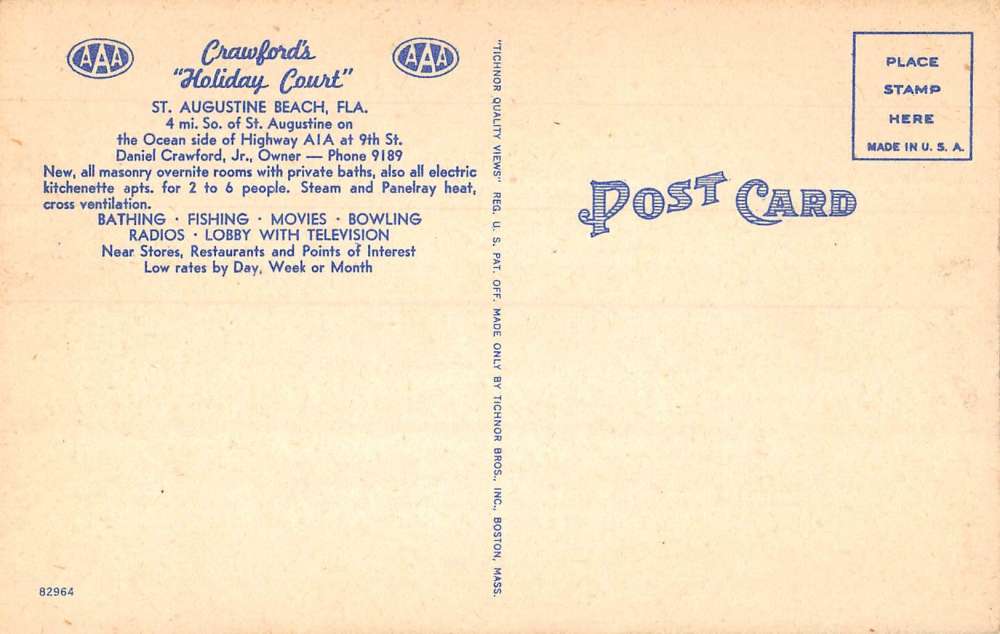 AAA
Crawford's
"Holiday Court"
AAA
ST. AUGUSTINE BEACH, FLA.
4 mi. So. of St. Augustine on
the Ocean side of Highway A1A at 9th St.
Daniel Crawford, Jr., Owner — Phone 9189
New, all masonry overnite rooms with private baths, also all electric
kitchenette apts. for 2 to 6 people. Steam and Panelray heat,
cross ventilation.
BATHING · FISHING · MOVIES · BOWLING
RADIOS · LOBBY WITH TELEVISION
Near Stores, Restaurants and Points of Interest
Low rates by Day, Week or Month
82964
"TICHNOR QUALITY VIEWS" REG. U. S. PAT. OFF. MADE ONLY BY TICHNOR BROS., INC., BOSTON, MASS.
POST CARD
PLACE
STAMP
HERE
MADE IN U. S. A.